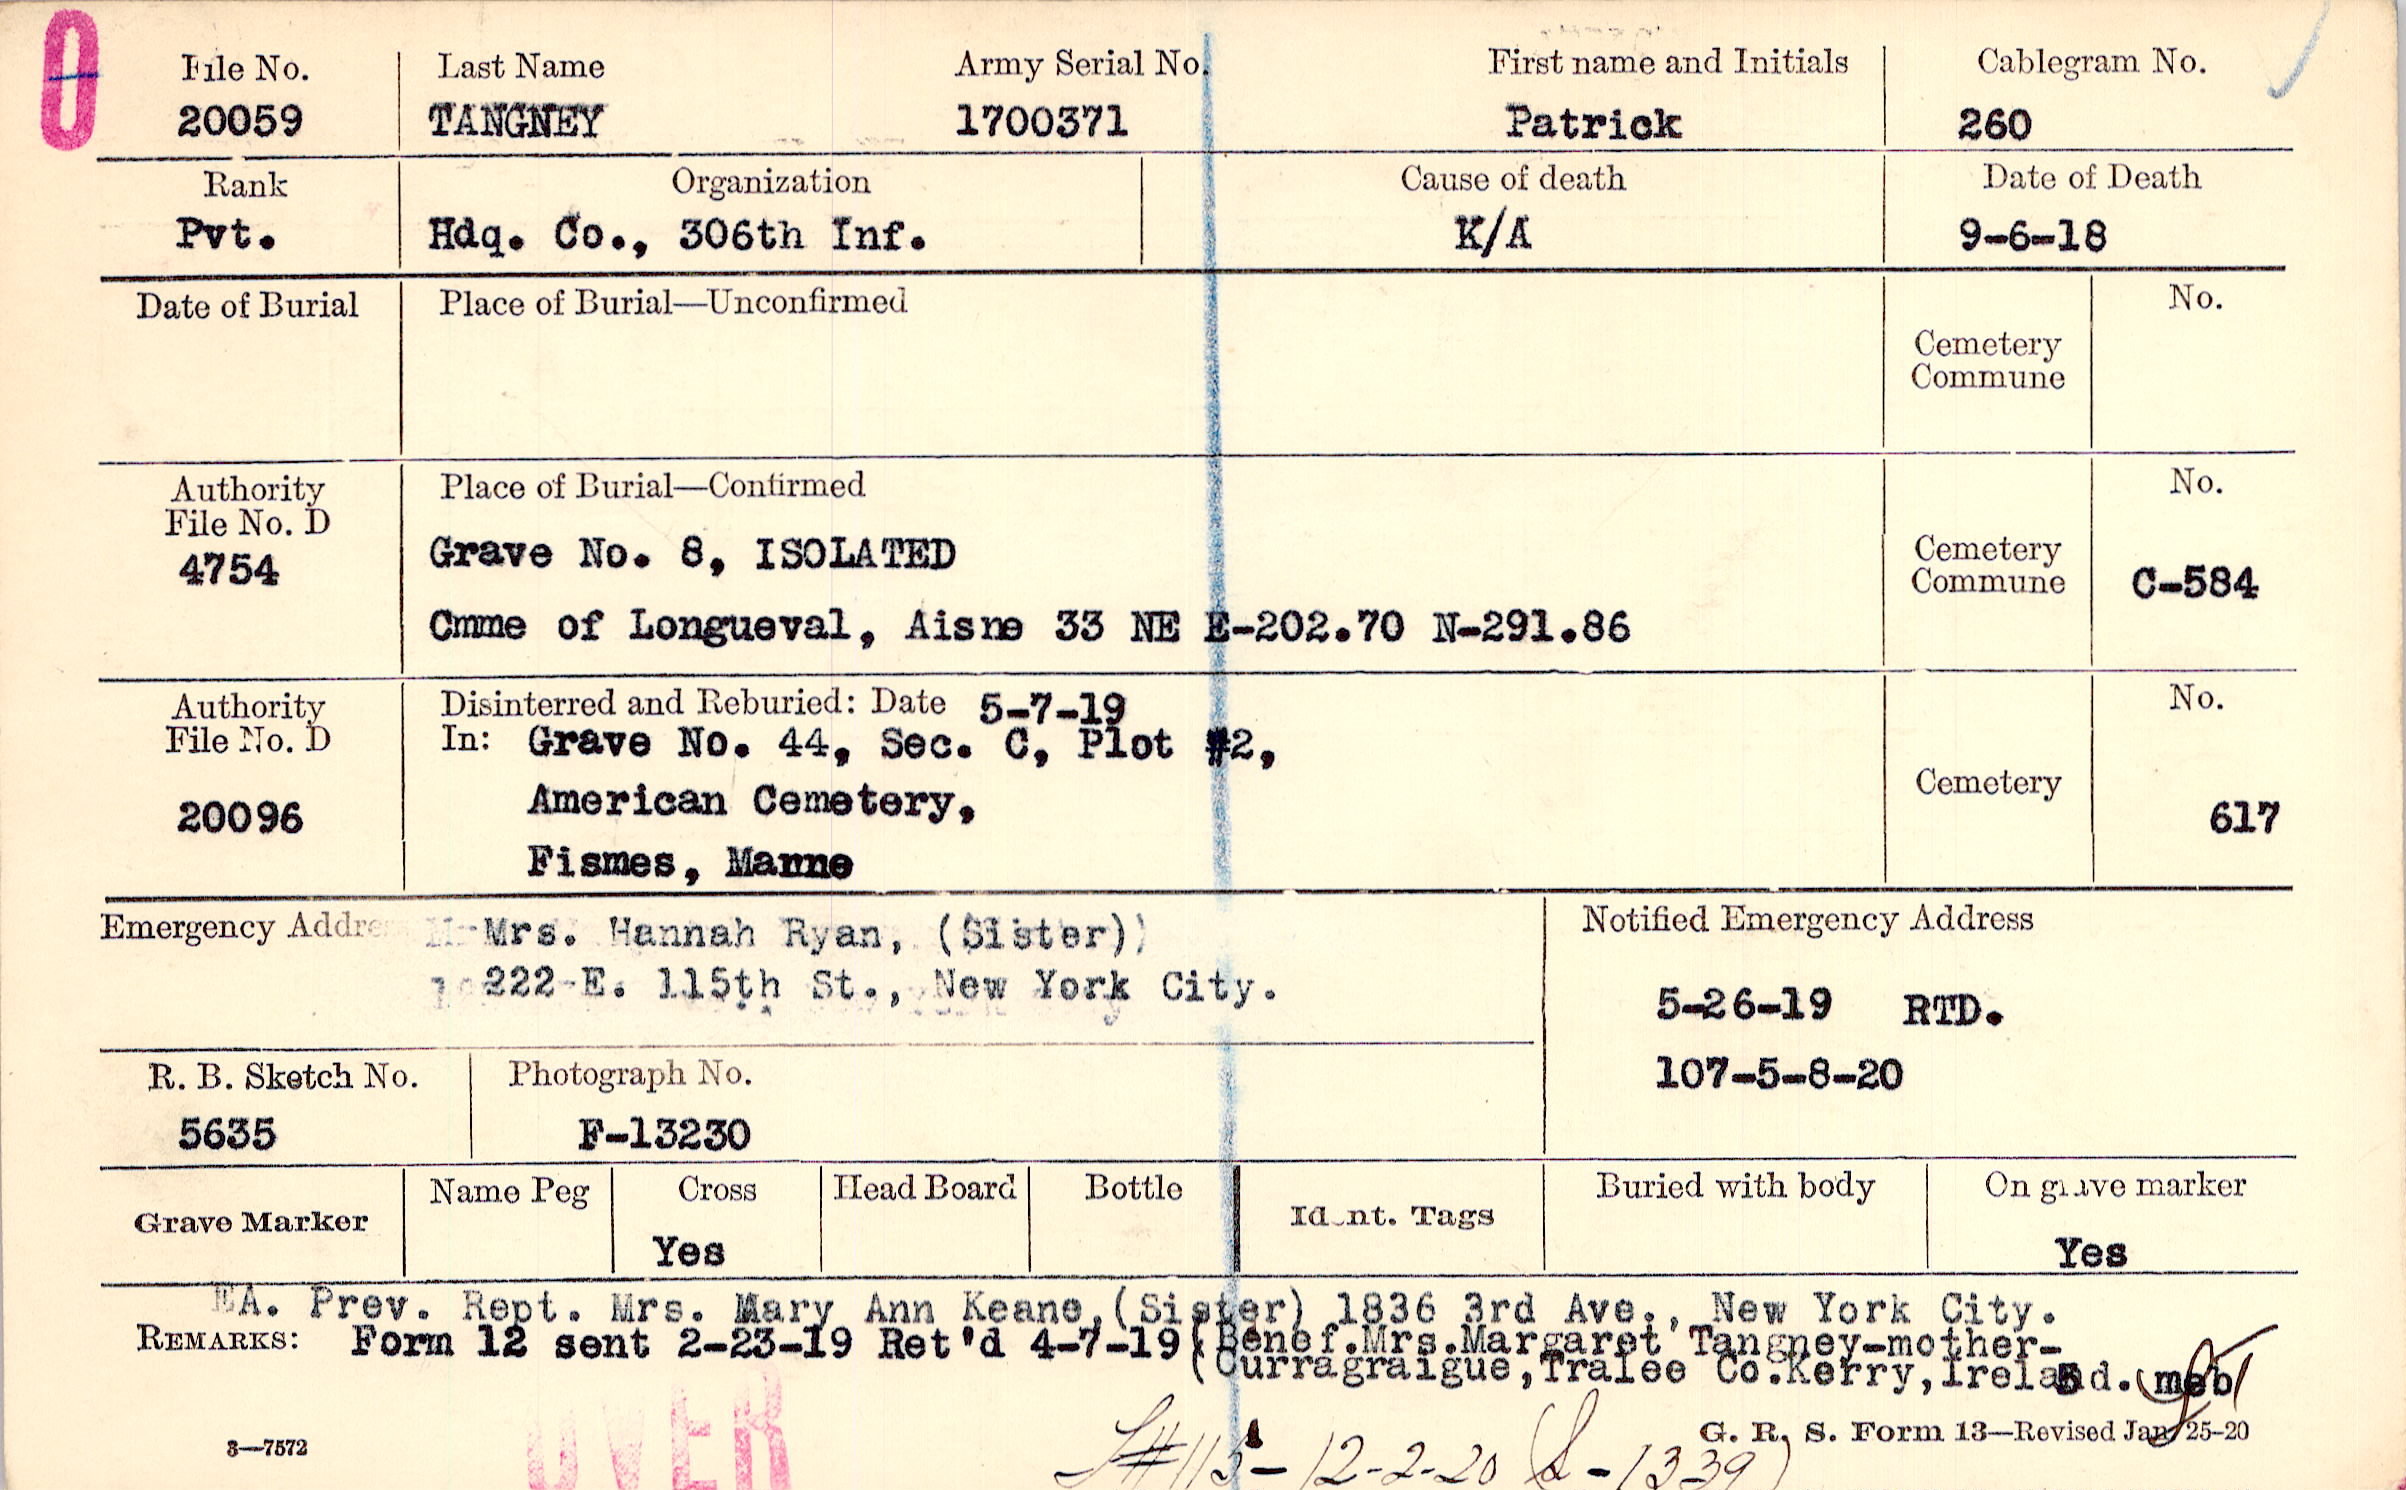 0
File No. Last Name Army Serial No. First name and Initials Cablegram No.
20059 TANGNEY 1700371 Patrick 260
Rank Organization Cause of death Date of Death
Pvt. Hdq. Co., 306th Inf. K/A 9-6-18
Date of Burial Place of Burial—Unconfirmed No.
Cemetery
Commune
Authority Place of Burial—Confirmed No.
File No. D
4754 Grave No. 8, ISOLATED Cemetery
Commune C-584
Cmme of Longueval, Aisne 33 NE E-202.70 N-291.86
Authority Disinterred and Reburied: Date 5-7-19 No.
File No. D In: Grave No. 44, Sec. C, Plot #2,
Cemetery
20096 American Cemetery, 617
Fismes, Marne
Emergency Addre Mrs. Hannah Ryan, (Sister) Notified Emergency Address
222 E. 115th St., New York City.
5-26-19 RTD.
107-5-8-20
R. B. Sketch No. Photograph No.
5635 F-13230
Grave Marker Name Peg Cross Head Board Bottle Ident. Tags Buried with body On grave marker
Yes Yes
EA. Prev. Rept. Mrs. Mary Ann Keane,(Sister) 1836 3rd Ave., New York City.
REMARKS: Form 12 sent 2-23-19 Ret'd 4-7-19 (Benef.Mrs.Margaret Tangney-mother-
(Curragraigue,Tralee Co.Kerry,Ireland. meb
OVER
3—7572 G. R. S. Form 13—Revised Jan 25-20
#115-12-2-20 -1339)